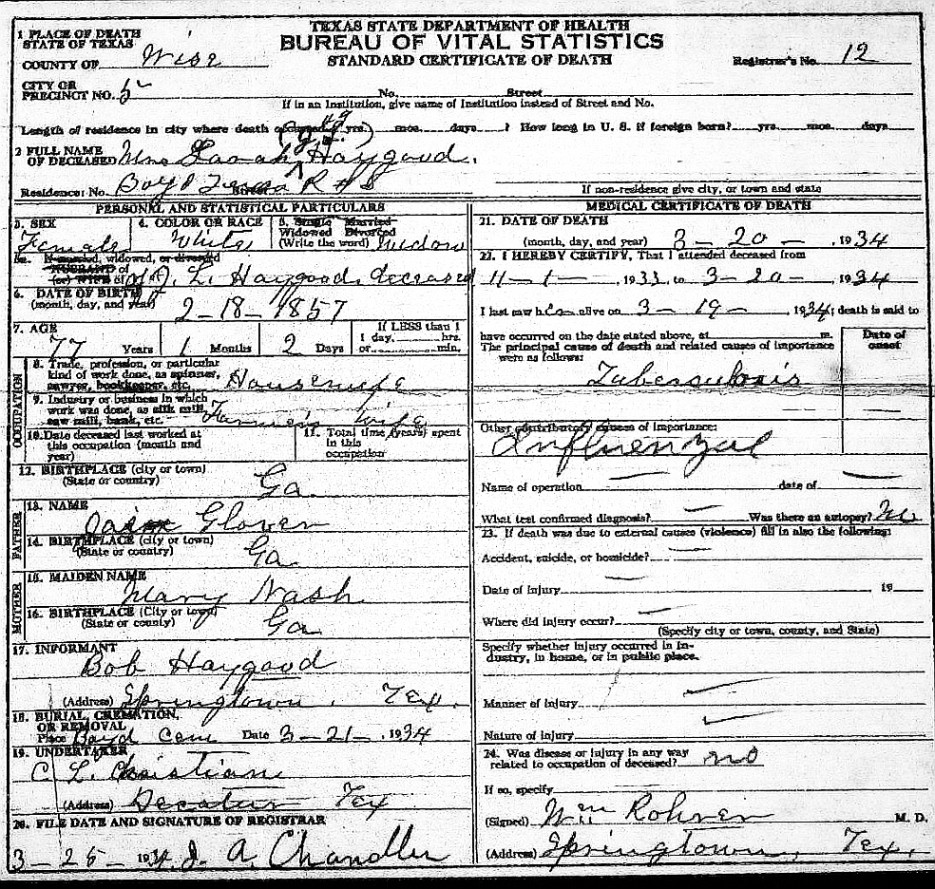 TEXAS STATE DEPARTMENT OF HEALTH
BUREAU OF VITAL STATISTICS
STANDARD CERTIFICATE OF DEATH
1 PLACE OF DEATH
STATE OF TEXAS
COUNTY OF Wise
Registrar's No. 12
CITY OR
PRECINCT NO. 5 No. Street
If in an Institution, give name of Institution instead of Street and No.
Length of residence in city where death occurred yrs. mos. days ? How long in U. S. if foreign born? yrs. mos. days
2 FULL NAME
OF DECEASED Mrs Haygood.
Residence: No. Boyd Texas R # 3
If non-residence give city, or town and state
PERSONAL AND STATISTICAL PARTICULARS
3. SEX
Female
4. COLOR OR RACE
White
5. Single Married
Widowed Divorced
(Write the word) Widow
5a. If married, widowed, or divorced
HUSBAND of
(or) WIFE of J. L. Haygood, deceased
6. DATE OF BIRTH
(month, day, and year) 2-18-1857
7. AGE
77 Years 1 Months 2 Days
If LESS than 1
1 day, hrs.
or min.
OCCUPATION
8. Trade, profession, or particular
kind of work done, as spinner,
sawyer, bookkeeper, etc. Housewife
9. Industry or business in which
work was done, as silk mill,
saw mill, bank, etc. Farmer's Wife
10. Date deceased last worked at
this occupation (month and
year)
11. Total time (years) spent
in this
occupation
12. BIRTHPLACE (city or town)
(State or country) Ga.
FATHER
13. NAME
Glover
14. BIRTHPLACE (city or town)
(State or country) Ga
MOTHER
15. MAIDEN NAME
Mary Nash
16. BIRTHPLACE (City or town)
(State or country) Ga
17. INFORMANT
Bob Haygood
(Address) Springtown, Tex.
18. BURIAL, CREMATION,
OR REMOVAL
Place Boyd Cem Date 3-21-1934
19. UNDERTAKER
C L Christian
(Address) Decatur Tex
20. FILE DATE AND SIGNATURE OF REGISTRAR
3-25-1934 J. A. Chandler
MEDICAL CERTIFICATE OF DEATH
21. DATE OF DEATH
(month, day, and year) 3-20-, 1934
22. I HEREBY CERTIFY, That I attended deceased from
11-1-, 1933, to 3-20-, 1934
I last saw her alive on 3-19-, 1934; death is said to
have occurred on the date stated above, at m.
The principal cause of death and related causes of importance
were as follows:
Date of
onset
Tuberculosis
Other contributory causes of importance:
Influenzae
Name of operation date of
What test confirmed diagnosis? Was there an autopsy? No
23. If death was due to external causes (violence) fill in also the following:
Accident, suicide, or homicide?
Date of injury 19
Where did injury occur?
(Specify city or town, county, and State)
Specify whether injury occurred in in-
dustry, in home, or in public place.
Manner of injury
Nature of injury
24. Was disease or injury in any way
related to occupation of deceased? no
If so, specify
(Signed) Wm Rohrer M. D.
(Address) Springtown, Tex.